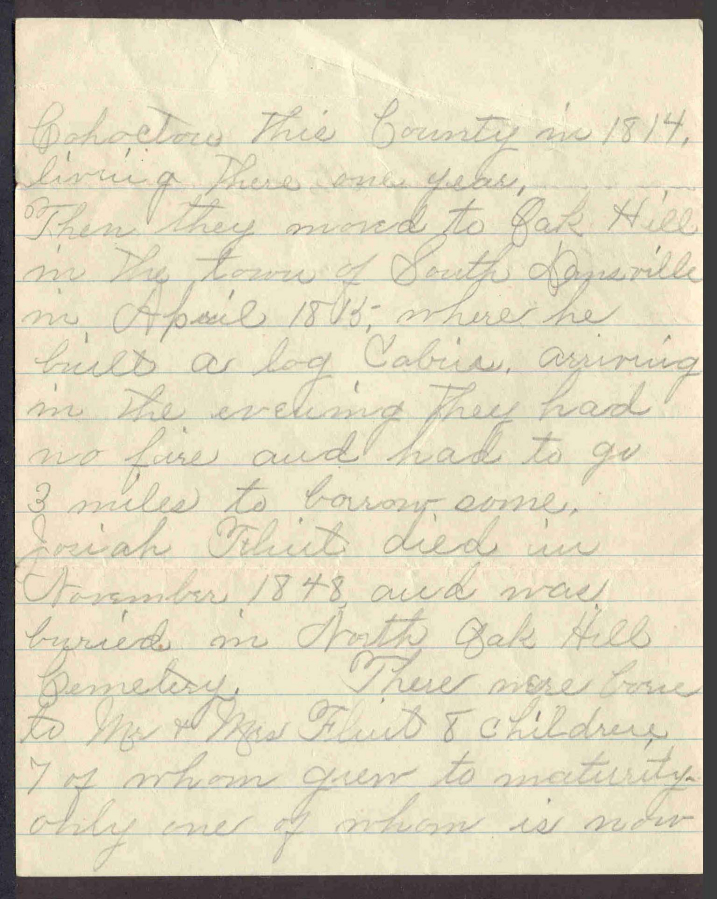 Cohocton this County in 1814,
living there one year,
Then they moved to Oak Hill
in the town of South Dansville
in April 1815, where he
built a log Cabin, arriving
in the evening they had
no fire and had to go
3 miles to borrow some.
Josiah Flint died in
November 1848 and was
buried in North Oak Hill
Cemetery. There were born
to Mr & Mrs Flint 8 children,
7 of whom grew to maturity-
only one of whom is now